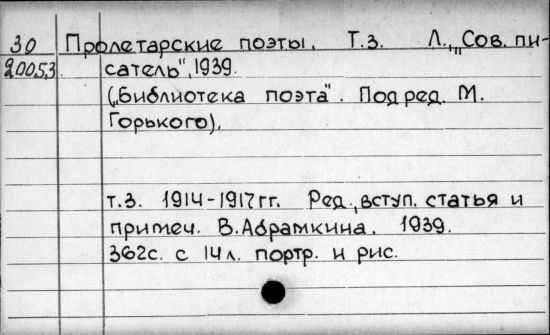 30 Пролетарские поэты. Т.3. Л., „Сов. пи-
20053 сатель", 1939.
(„Библиотека поэта". Под ред. М.
Горького).
т.3. 1914-1917гг. Ред., вступ. статья и
примеч. В. Абрамкина. 1939.
362с. с 14л. портр. и рис.